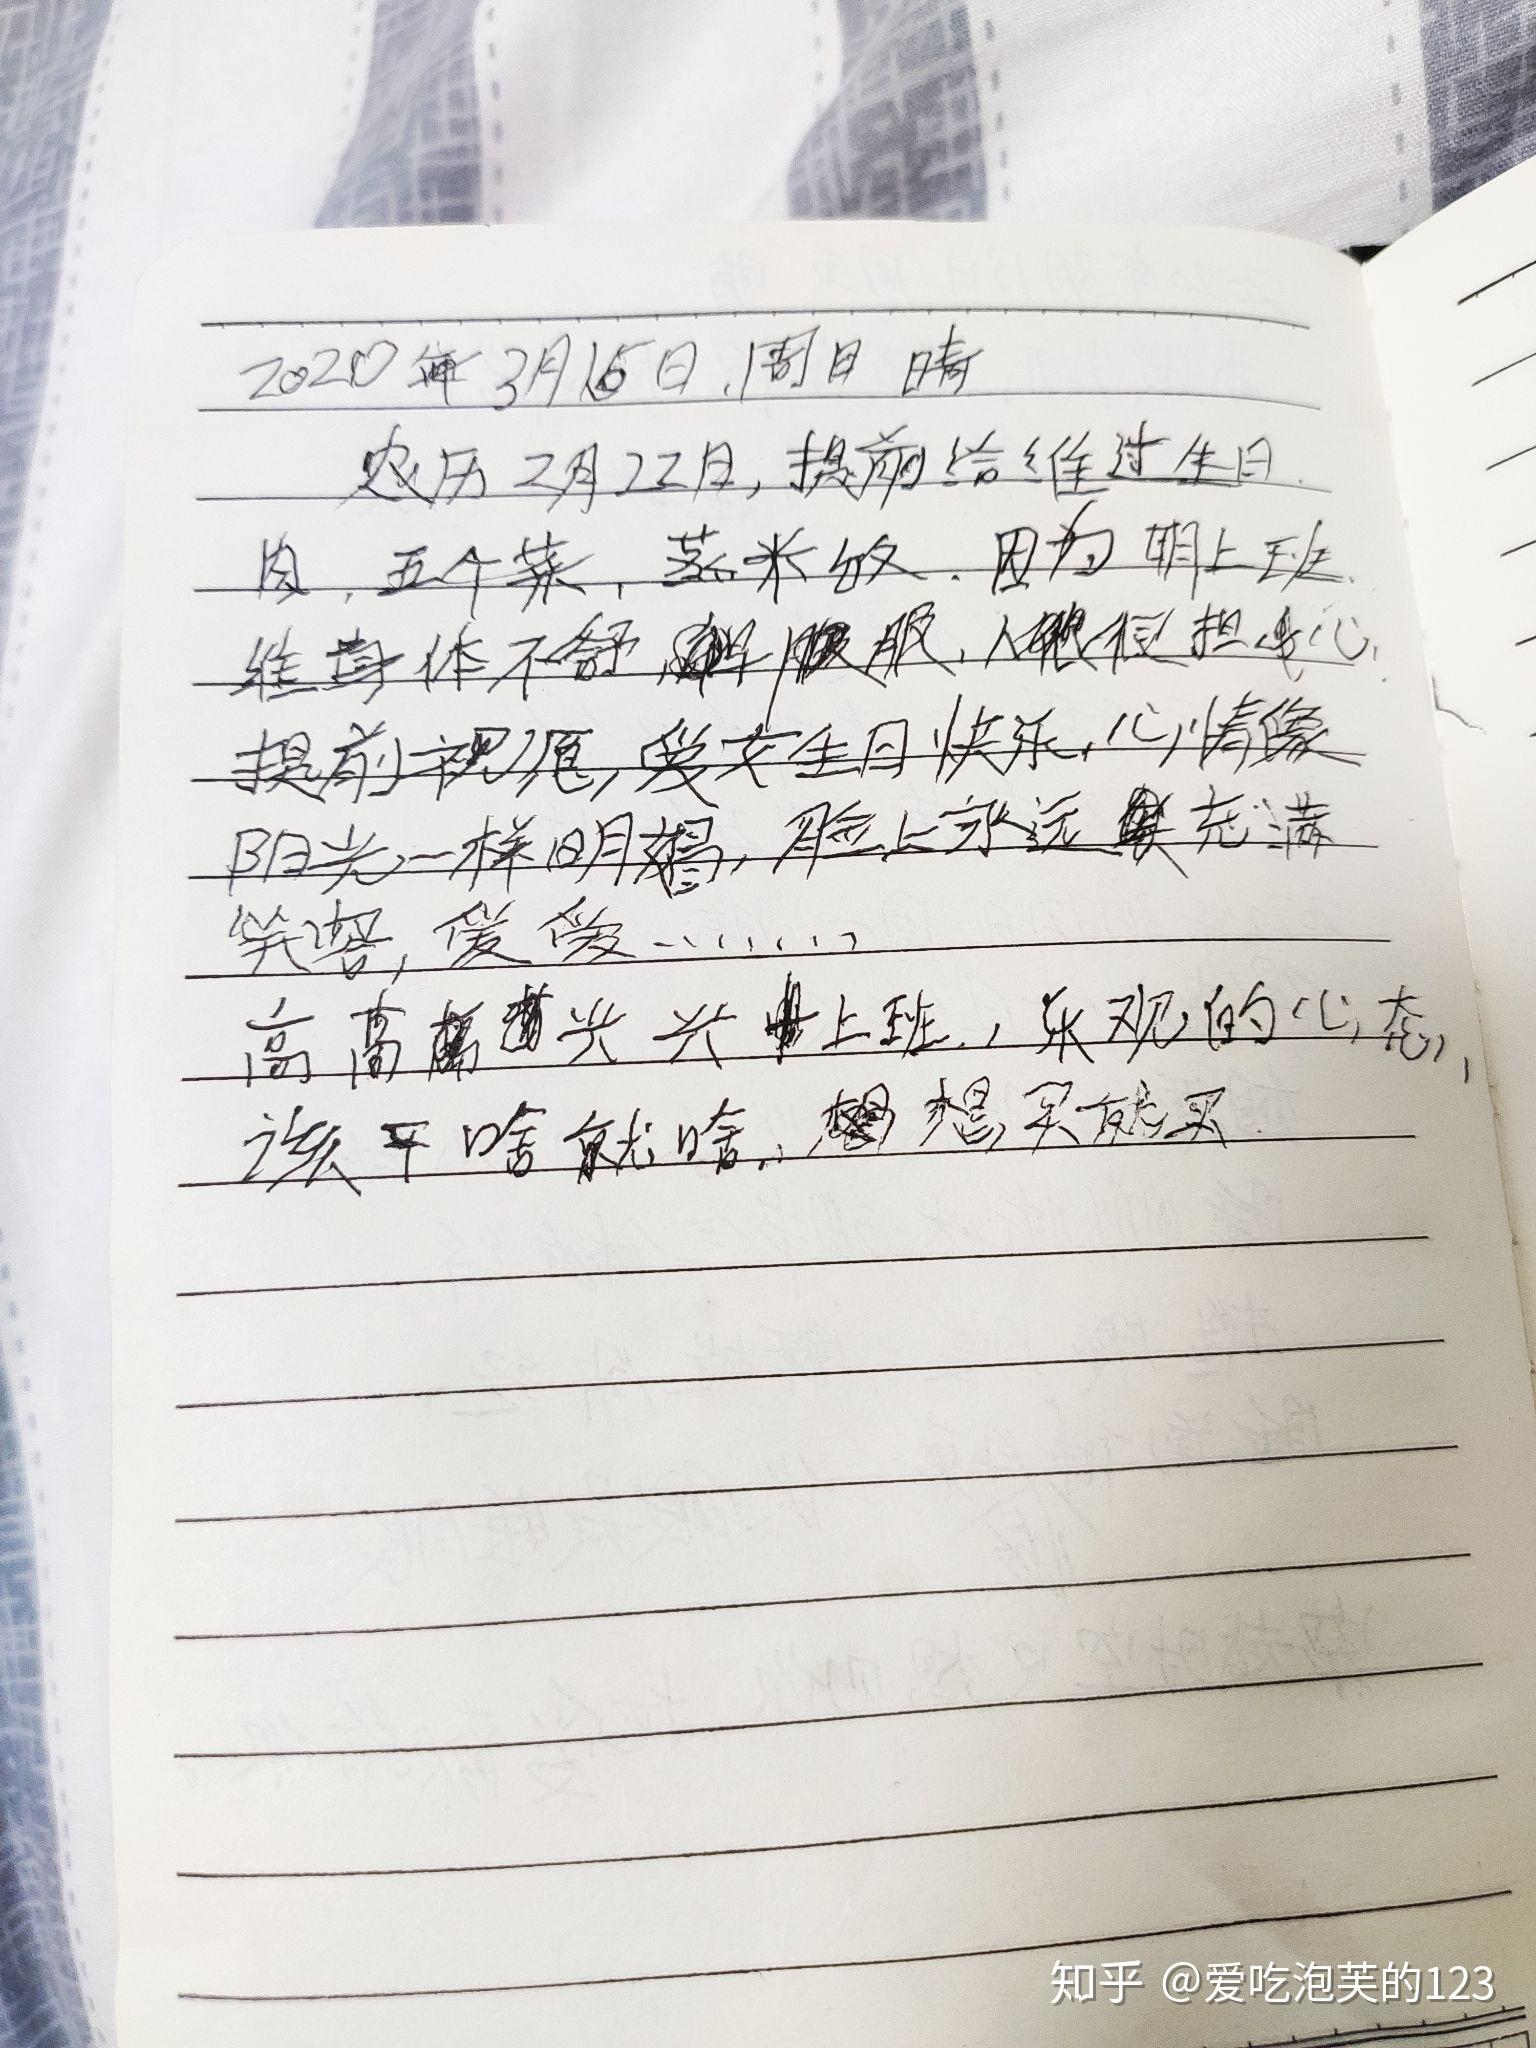 2020年3月15日.周日 晴
农历2月22日,提前给维过生日.
肉.五个菜,蒸米饭.因为明上班.
维身体不舒服,很担心.
提前祝愿,爱女生日快乐,心情像
阳光一样明媚,脸上永远充满
笑容,爱爱.........
高高兴兴上班.,乐观的心态,
该干啥就啥.,想买就买.
知乎 @爱吃泡芙的123